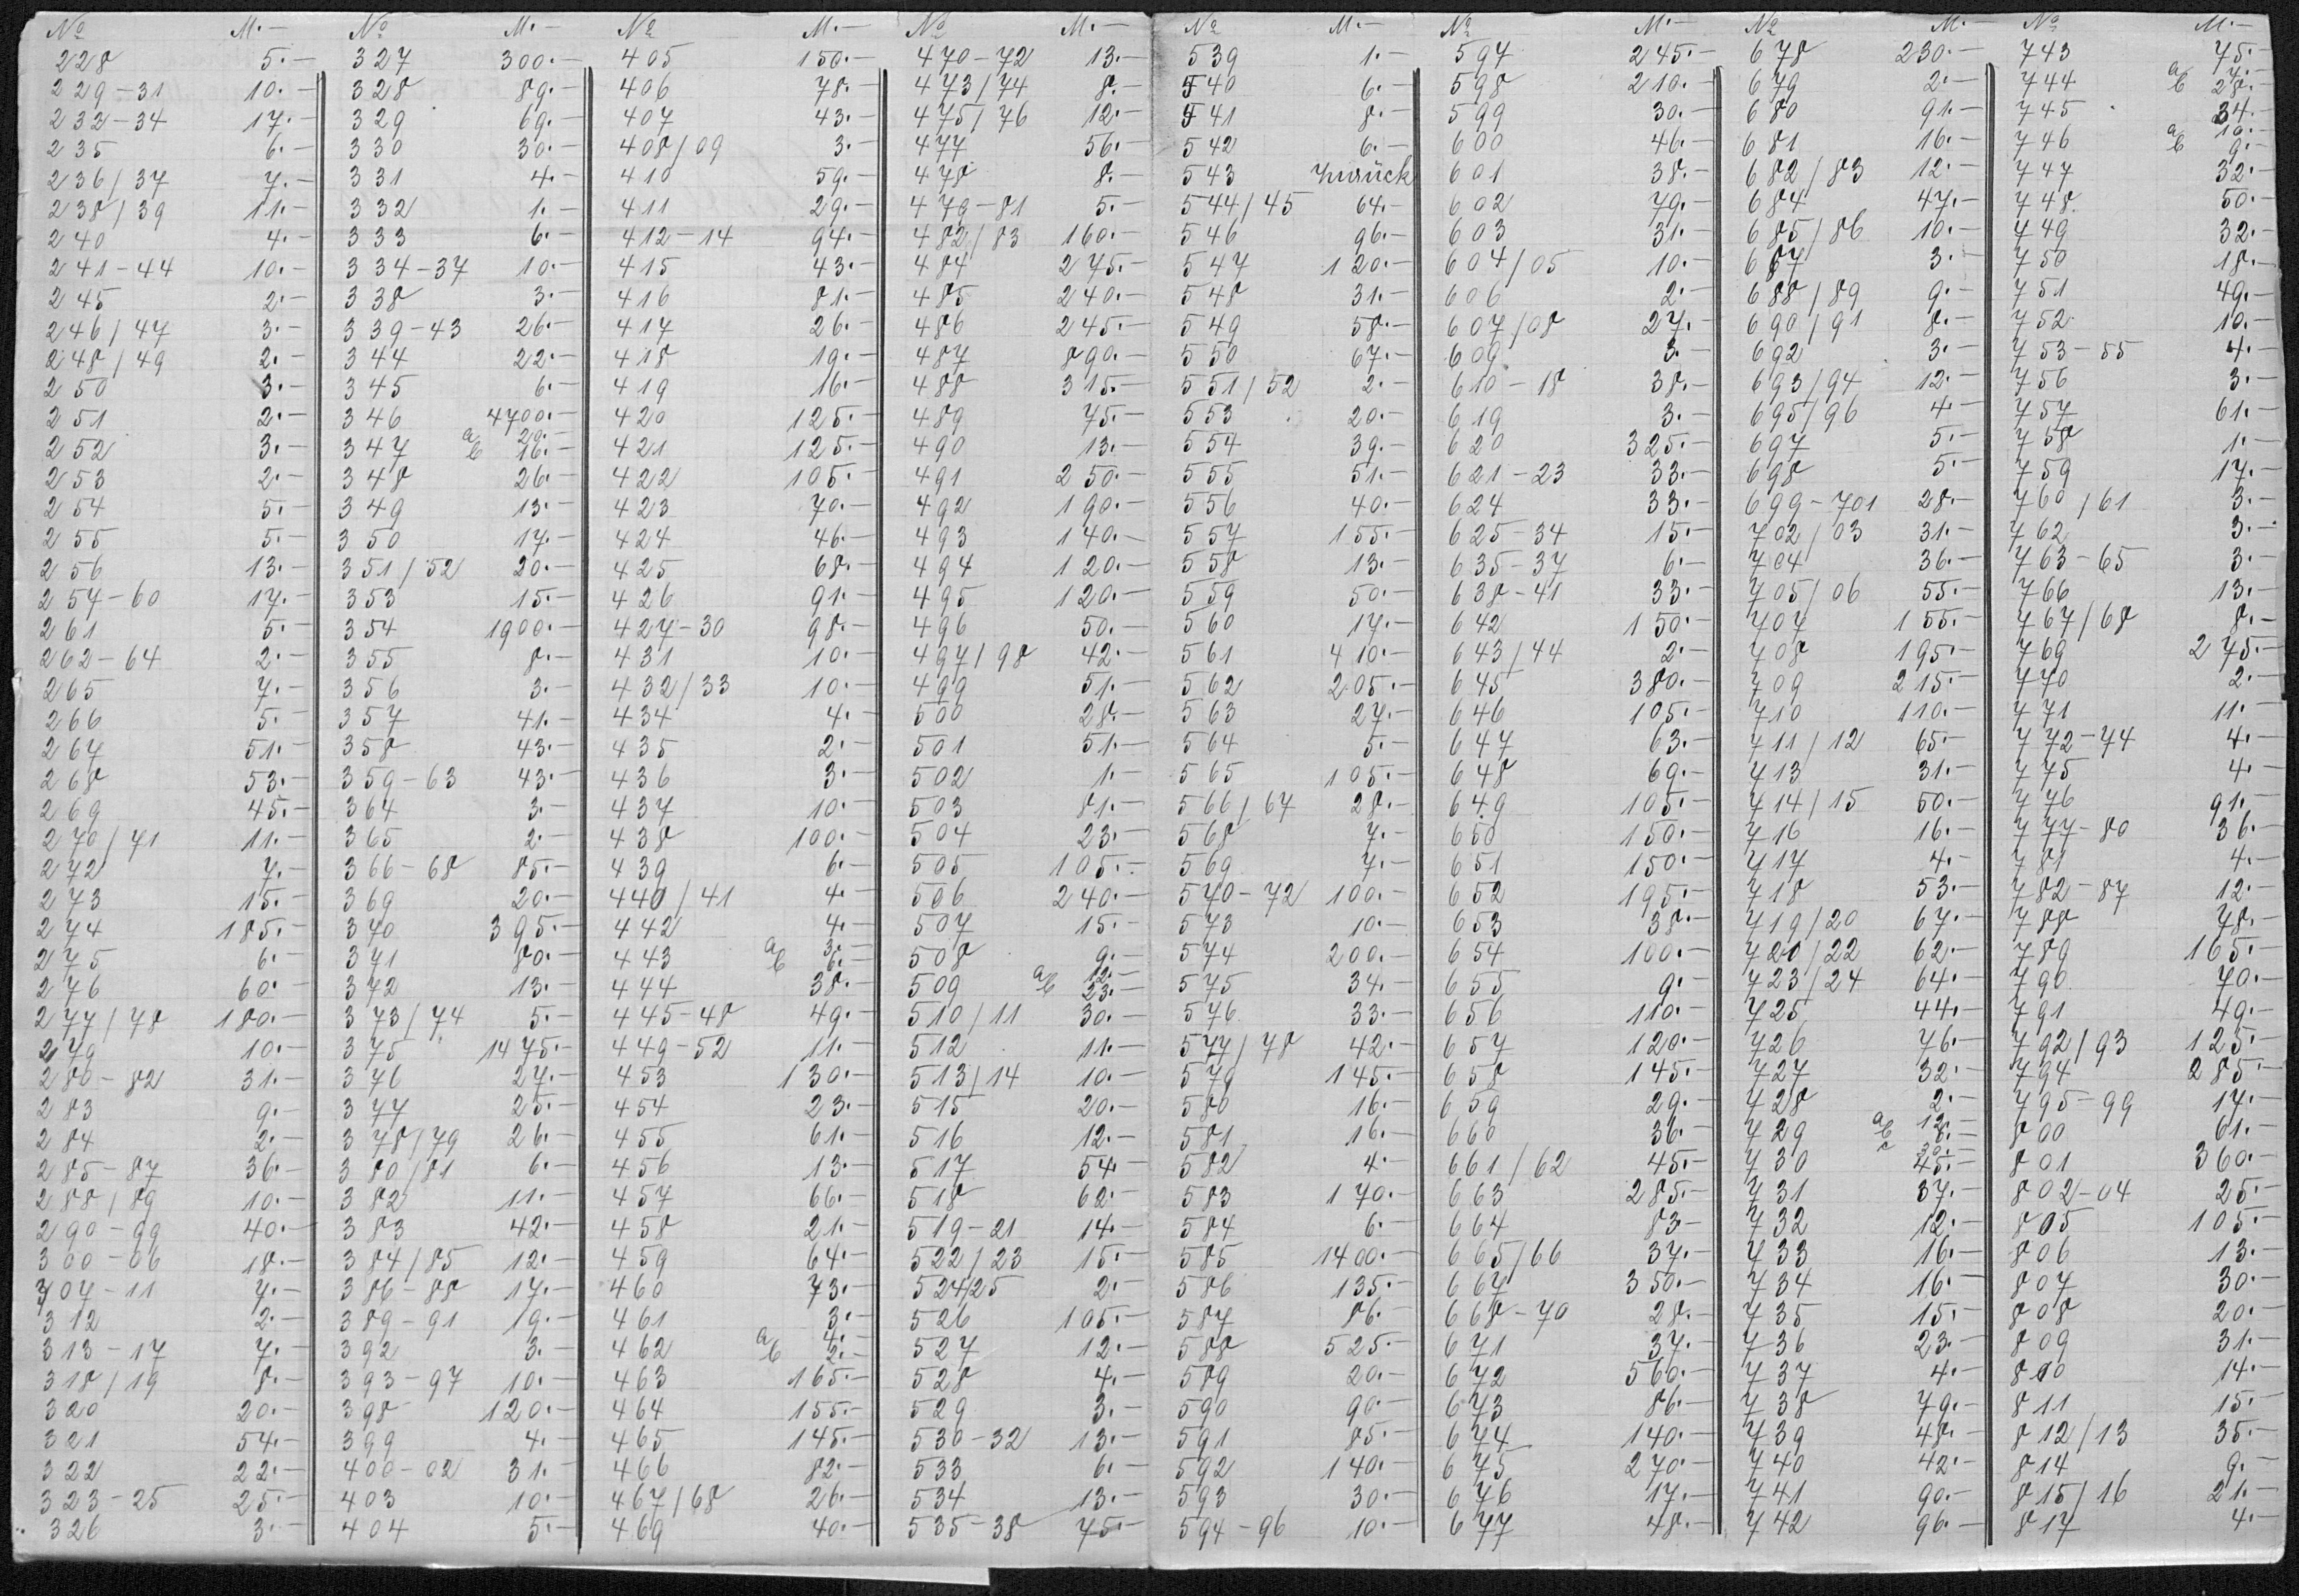 No M.—
228 5.—
229-31 10.—
232-34 17.—
235 6.—
236/37 7.—
238/39 11.—
240 4.—
241-44 10.—
245 2.—
246/47 3.—
248/49 2.—
250 3.—
251 2.—
252 3.—
253 2.—
254 5.—
255 5.—
256 13.—
257-60 17.—
261 5.—
262-64 2.—
265 7.—
266 5.—
267 51.—
268 53.—
269 45.—
270/71 11.—
272 7.—
273 15.—
274 185.—
275 6.—
276 60.—
277/78 180.—
279 10.—
280-82 31.—
283 9.—
284 2.—
285-87 36.—
288/89 10.—
290-99 40.—
300-06 18.—
307-11 7.—
312 2.—
313-17 7.—
318/19 8.—
320 20.—
321 54.—
322 22.—
323-25 25.—
326 3.—
No M.—
327 300.—
328 89.—
329 69.—
330 30.—
331 4.—
332 1.—
333 6.—
334-37 10.—
338 3.—
339-43 26.—
344 22.—
345 6.—
346 4700.—
347 a 20.—
b 16.—
348 26.—
349 13.—
350 17.—
351/52 20.—
353 15.—
354 1900.—
355 8.—
356 3.—
357 41.—
358 43.—
359-63 43.—
364 3.—
365 2.—
366-68 85.—
369 20.—
370 395.—
371 80.—
372 13.—
373/74 5.—
375 1475.—
376 27.—
377 25.—
378/79 26.—
380/81 6.—
382 11.—
383 42.—
384/85 12.—
386-88 17.—
389-91 19.—
392 3.—
393-97 10.—
398 120.—
399 4.—
400-02 31.—
403 10.—
404 5.—
No M.—
405 150.—
406 78.—
407 43.—
408/09 3.—
410 59.—
411 29.—
412-14 94.—
415 43.—
416 81.—
417 26.—
418 19.—
419 16.—
420 125.—
421 125.—
422 105.—
423 70.—
424 46.—
425 68.—
426 91.—
427-30 98.—
431 10.—
432/33 10.—
434 4.—
435 2.—
436 3.—
437 10.—
438 100.—
439 6.—
440/41 4.—
442 4.—
443 a 3.—
b 6.—
444 38.—
445-48 49.—
449-52 11.—
453 130.—
454 23.—
455 61.—
456 13.—
457 66.—
458 21.—
459 64.—
460 73.—
461 3.—
462 a 4.—
b 2.—
463 165.—
464 155.—
465 145.—
466 82.—
467/68 26.—
469 40.—
No M.—
470-72 13.—
473/74 8.—
475/76 12.—
477 56.—
478 8.—
479-81 5.—
482/83 160.—
484 275.—
485 240.—
486 245.—
487 890.—
488 315.—
489 75.—
490 13.—
491 250.—
492 190.—
493 140.—
494 120.—
495 120.—
496 50.—
497/98 42.—
499 51.—
500 28.—
501 51.—
502 1.—
503 81.—
504 23.—
505 105.—
506 240.—
507 15.—
508 9.—
509 a 12.—
b 23.—
510/11 30.—
512 11.—
513/14 10.—
515 20.—
516 12.—
517 54.—
518 62.—
519-21 14.—
522/23 15.—
524/25 2.—
526 105.—
527 12.—
528 4.—
529 3.—
530-32 13.—
533 6.—
534 13.—
535-38 75.—
No M.—
539 1.—
540 6.—
541 8.—
542 6.—
543 zurück
544/45 64.—
546 96.—
547 120.—
548 31.—
549 58.—
550 67.—
551/52 2.—
553 20.—
554 39.—
555 51.—
556 40.—
557 155.—
558 13.—
559 50.—
560 17.—
561 410.—
562 205.—
563 27.—
564 5.—
565 105.—
566/67 28.—
568 7.—
569 7.—
570-72 100.—
573 10.—
574 200.—
575 34.—
576 33.—
577/78 42.—
579 145.—
580 16.—
581 16.—
582 4.—
583 170.—
584 6.—
585 1400.—
586 135.—
587 86.—
588 525.—
589 20.—
590 90.—
591 85.—
592 140.—
593 30.—
594-96 10.—
No M.—
597 245.—
598 210.—
599 30.—
600 46.—
601 38.—
602 79.—
603 31.—
604/05 10.—
606 2.—
607/08 27.—
609 3.—
610-18 38.—
619 3.—
620 325.—
621-23 33.—
624 33.—
625-34 15.—
635-37 6.—
638-41 33.—
642 150.—
643/44 2.—
645 380.—
646 105.—
647 63.—
648 69.—
649 105.—
650 150.—
651 150.—
652 195.—
653 38.—
654 100.—
655 9.—
656 110.—
657 120.—
658 145.—
659 29.—
660 36.—
661/62 45.—
663 285.—
664 83.—
665/66 37.—
667 350.—
668-70 28.—
671 37.—
672 560.—
673 86.—
674 140.—
675 270.—
676 17.—
677 48.—
No M.—
678 230.—
679 2.—
680 91.—
681 16.—
682/83 12.—
684 47.—
685/86 10.—
687 3.—
688/89 9.—
690/91 8.—
692 3.—
693/94 12.—
695/96 4.—
697 5.—
698 5.—
699-701 28.—
702/03 31.—
704 36.—
705/06 55.—
707 155.—
708 195.—
709 215.—
710 110.—
711/12 65.—
713 31.—
714/15 50.—
716 16.—
717 4.—
718 53.—
719/20 67.—
721/22 62.—
723/24 64.—
725 44.—
726 76.—
727 32.—
728 2.—
729 a 12.—
b 8.—
c 30.—
730 45.—
731 37.—
732 12.—
733 16.—
734 16.—
735 15.—
736 23.—
737 4.—
738 79.—
739 48.—
740 42.—
741 90.—
742 96.—
No M.—
743 75.—
744 a 7.—
b 28.—
745 34.—
746 a 10.—
b 9.—
747 32.—
748 50.—
749 32.—
750 18.—
751 49.—
752 10.—
753-55 4.—
756 3.—
757 61.—
758 1.—
759 17.—
760/61 3.—
762 3.—
763-65 3.—
766 13.—
767/68 8.—
769 275.—
770 2.—
771 11.—
772-74 4.—
775 4.—
776 91.—
777-80 36.—
781 4.—
782-87 12.—
788 78.—
789 165.—
790 70.—
791 49.—
792/93 125.—
794 285.—
795-99 17.—
800 61.—
801 360.—
802-04 25.—
805 105.—
806 13.—
807 30.—
808 20.—
809 31.—
810 14.—
811 15.—
812/13 35.—
814 9.—
815/16 21.—
817 4.—